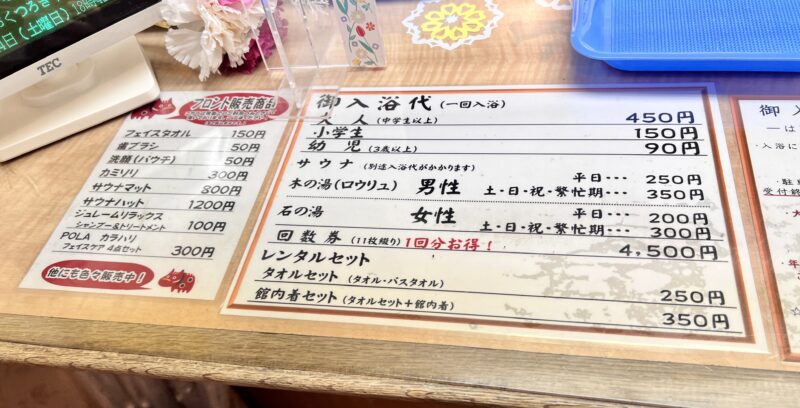 くつろぎ
4日(土曜日)
TEC
フロント販売商品
フェイスタオル 150円
歯ブラシ 50円
洗顔(パウチ) 50円
カミソリ 300円
サウナマット 800円
サウナハット 1200円
ジュレームリラックス
シャンプー&トリートメント 100円
POLA カラハリ
フェイスケア 4点セット 300円
他にも色々販売中!
御入浴代(一回入浴)
大人(中学生以上) 450円
小学生 150円
幼児(3歳以上) 90円
サウナ(別途入浴代がかかります)
木の湯(ロウリュ) 男性 平日・・・ 250円
土・日・祝・繁忙期・・・ 350円
石の湯 女性 平日・・・ 200円
土・日・祝・繁忙期・・・ 300円
回数券(11枚綴り) 1回分お得! 4,500円
レンタルセット
タオルセット(タオル・バスタオル) 250円
館内着セット(タオルセット+館内着) 350円
御入